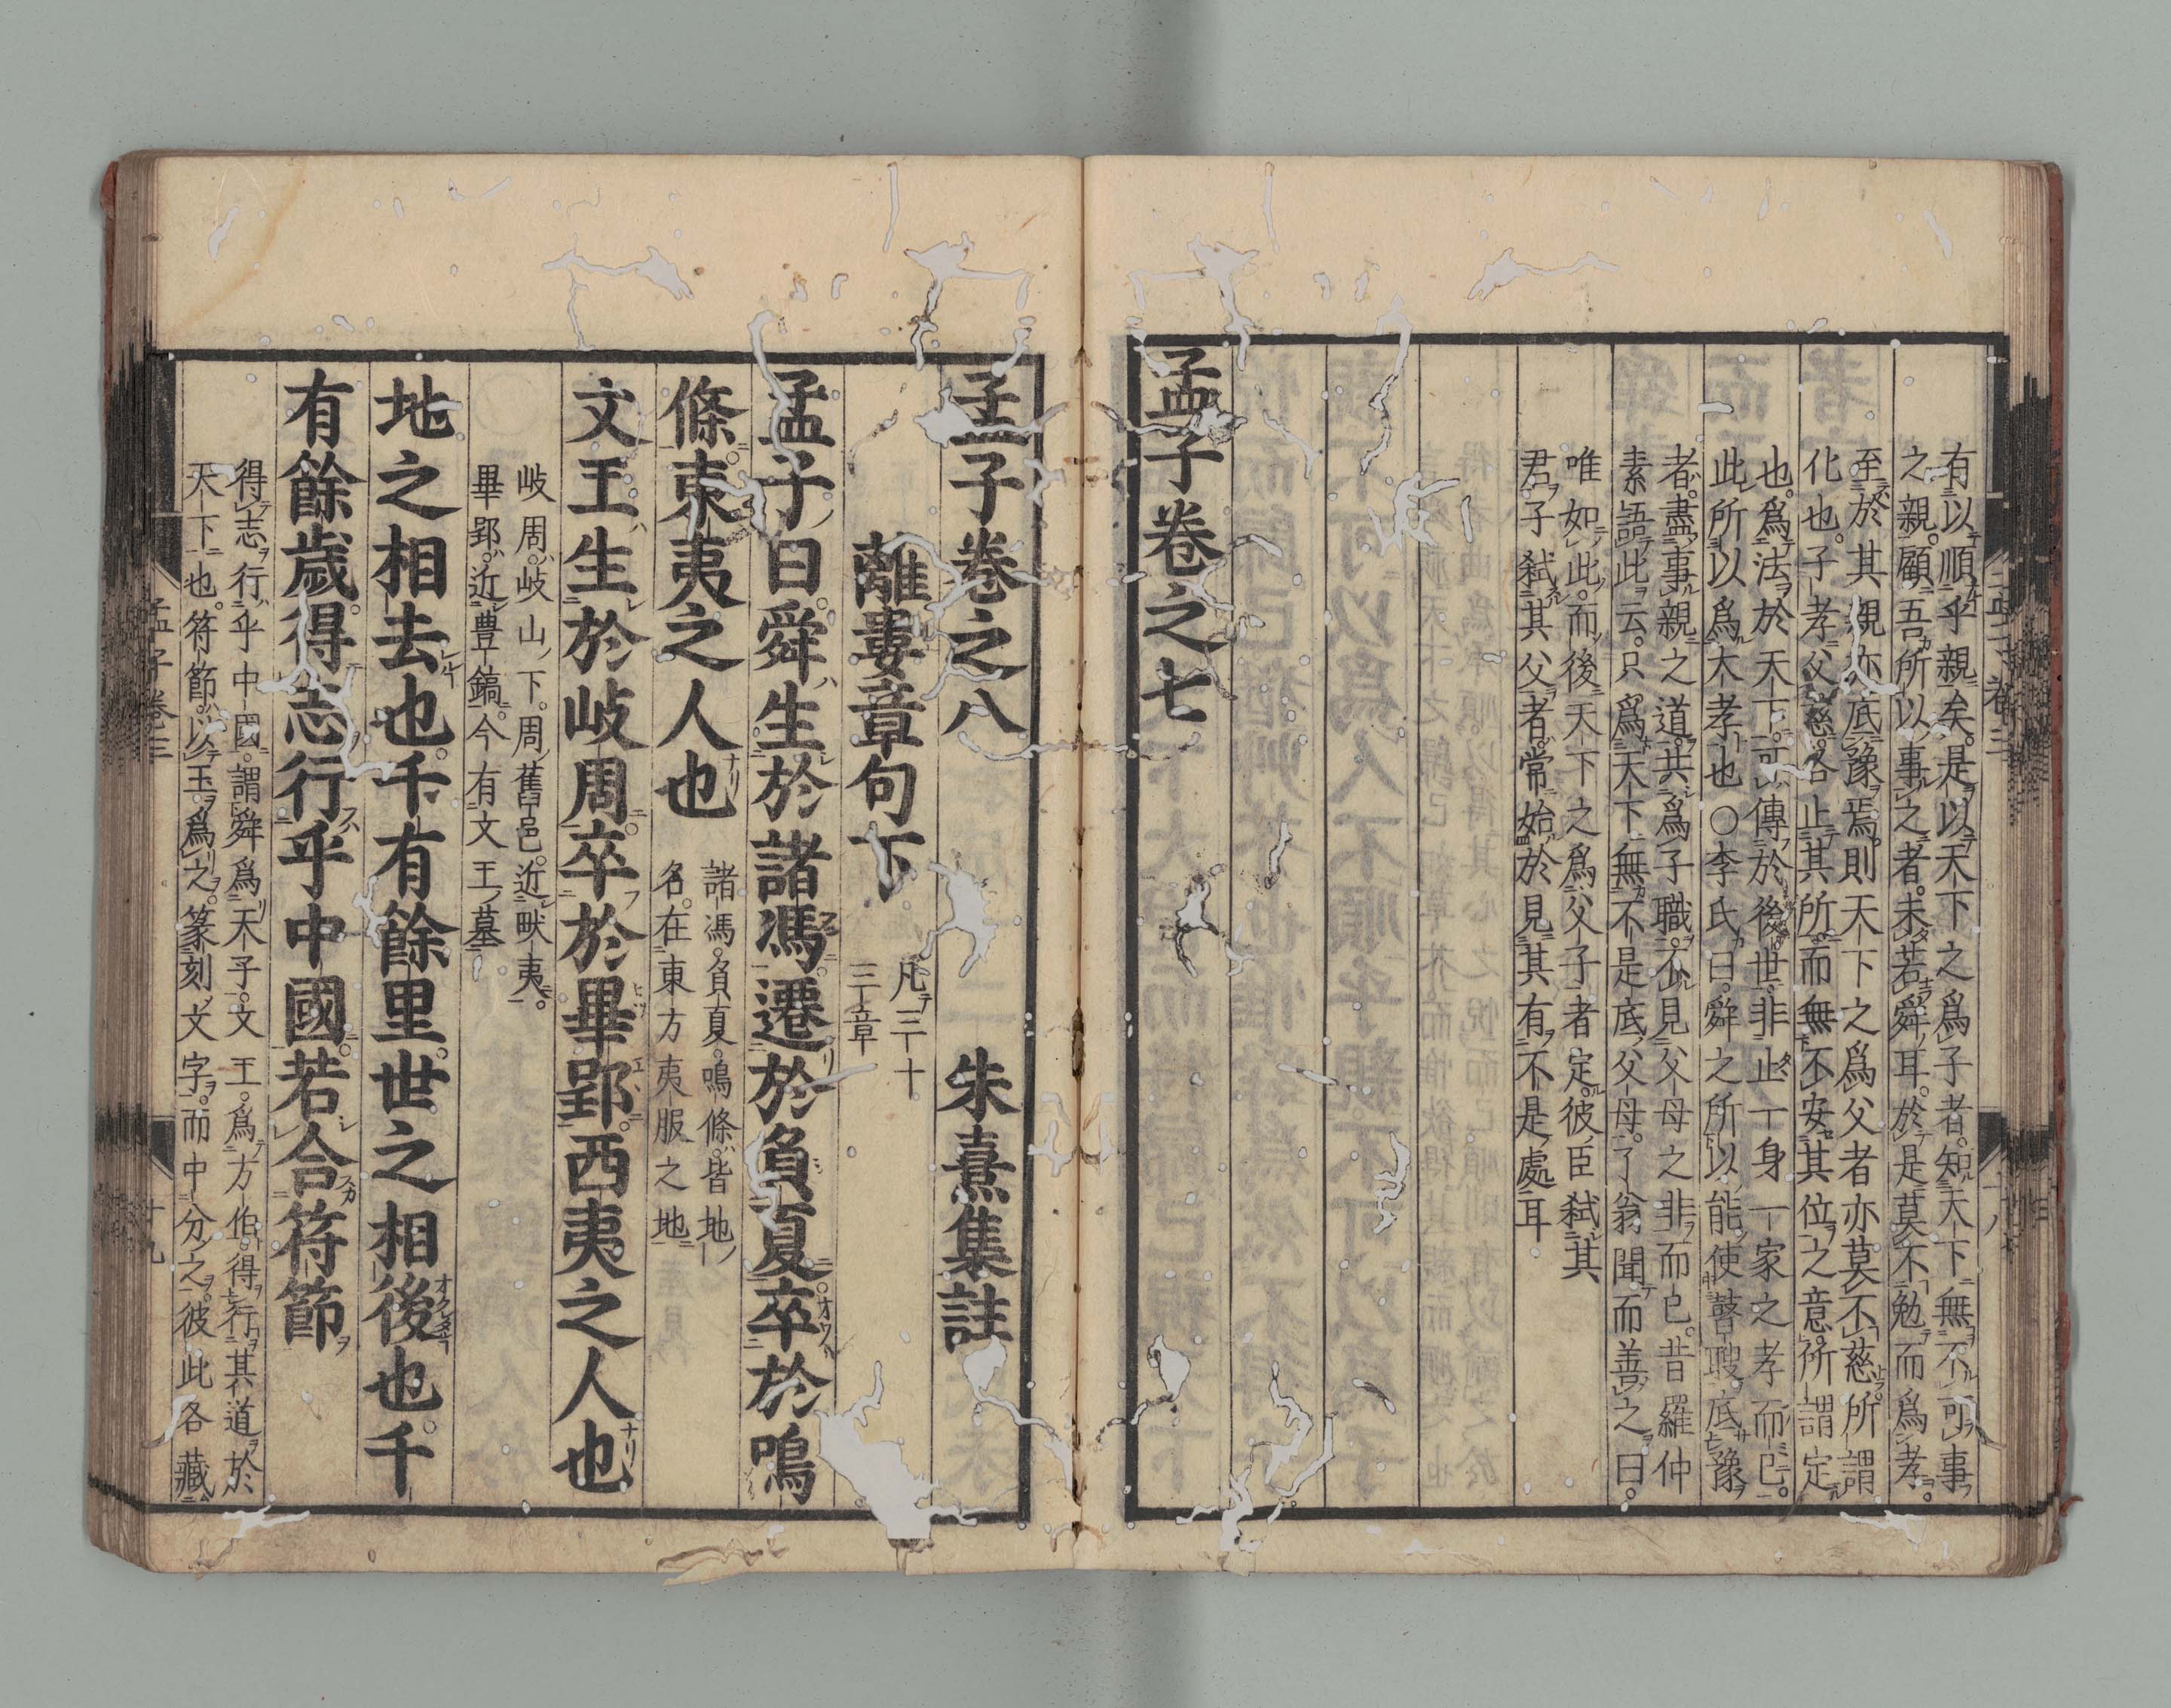 有以順乎親矣。是以天下之爲子者。知天下無不可事
之親。顧吾所以事之者。未若舜耳。於是莫不勉而爲孝。
至於其親亦底豫焉。則天下之爲父者亦莫不慈。所謂
化也。子孝父慈。各止其所。而無不安其位之意。所謂定
也。爲法於天下。可傳於後世。非止一身一家之孝而已。
此所以爲大孝也○李氏曰。舜之所以能使瞽瞍底豫
者。盡事親之道。共爲子職。不見父母之非而已。昔羅仲
素語此云。只爲天下無不是底父母。了翁聞而善之曰。
唯如此。而後天下之爲父子者定。彼臣弑其
君。子弑其父者。常始於見其有不是處耳。
孟子卷之七
孟子卷之八　朱熹集註
離婁章句下
凡三十
三章
孟子曰。舜生於諸馮。遷於負夏。卒於鳴
條。東夷之人也
諸馮。負夏。鳴條。皆地
名。在東方夷服之地
文王生於岐周。卒於畢郢。西夷之人也
岐周。岐山下。周舊邑。近畎夷。
畢郢。近豊鎬。今有文王墓
地之相去也。千有餘里。世之相後也。千
有餘歲。得志行乎中國。若合符節
得志行乎中國。謂舜爲天子。文王。爲方伯。得行其道於
天下也。符節。以玉爲之。篆刻文字。而中分之。彼此各藏
孟子卷三
十九